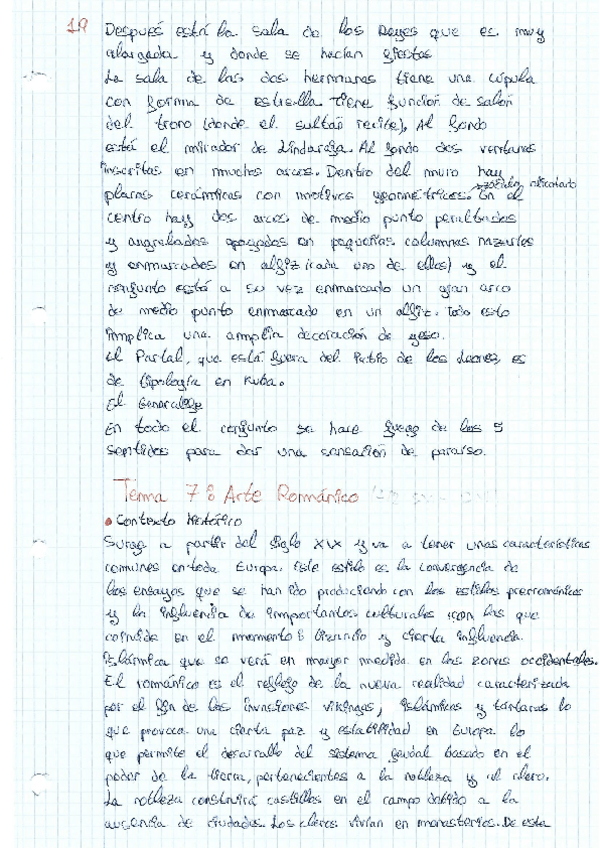 19 Después está la sala de los Reyes que es muy
alargada y donde se hacían fiestas
La sala de las dos hermanas tiene una cúpula
con forma de estrella. Tiene función de salón
del trono (donde el sultán recibe). Al fondo
está el mirador de Lindaraja. Al fondo dos ventanas
inscritas en muchos arcos. Dentro del muro hay
placas cerámicas con motivos geométricos. zócalo alicatado En el
centro hay dos arcos de medio punto peraltados
y angrelados apoyados en pequeñas columnas nazaríes
y enmarcados en alfiz (cada uno de ellos) y el
conjunto está a su vez enmarcado un gran arco
de medio punto enmarcado en un alfiz. Todo esto
implica una amplia decoración de yeso.
El Partal, que está fuera del Patio de los Leones, es
de tipología en Kuba.
El Generalife
En todo el conjunto se hace juego de los 5
sentidos para dar una sensación de paraíso.
Tema 7: Arte Románico
• Contexto histórico
Surge a partir del siglo XIX y va a tener unas características
comunes en toda Europa. Este estilo es la convergencia de
los ensayos que se han ido produciendo con los estilos prerrománicos
y la influencia de importantes culturales con las que
coincide en el momento: bizancio y cierta influencia
islámica que se verá en mayor medida en las zonas occidentales.
El románico es el reflejo de la nueva realidad caracterizada
por el fin de las invasiones vikingas, islámicas y tártaras lo
que provoca una cierta paz y estabilidad en Europa lo
que permite el desarrollo del sistema feudal basado en el
poder de la tierra, pertenecientes a la nobleza y el clero.
La nobleza construirá castillos en el campo debido a la
ausencia de ciudades. Los cleros vivían en monasterios. De esta